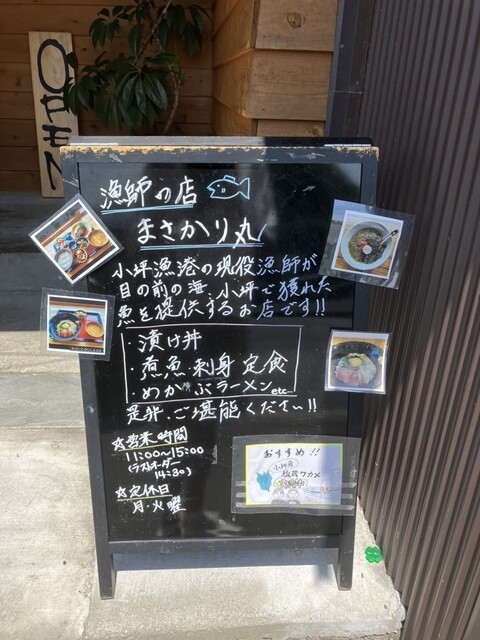 OPEN
漁師の店
まさかり丸
小坪漁港の現役漁師が
目の前の海、小坪で獲れた
魚を提供するお店です!!
・漬け丼
・煮魚・刺身定食
・めかぶラーメン etc…
是非、ご堪能ください!!
☆営業時間
11:00〜15:00
(ラストオーダー
14:30)
☆定休日
月・火曜
おすすめ!!
小坪産
塩蔵ワカメ